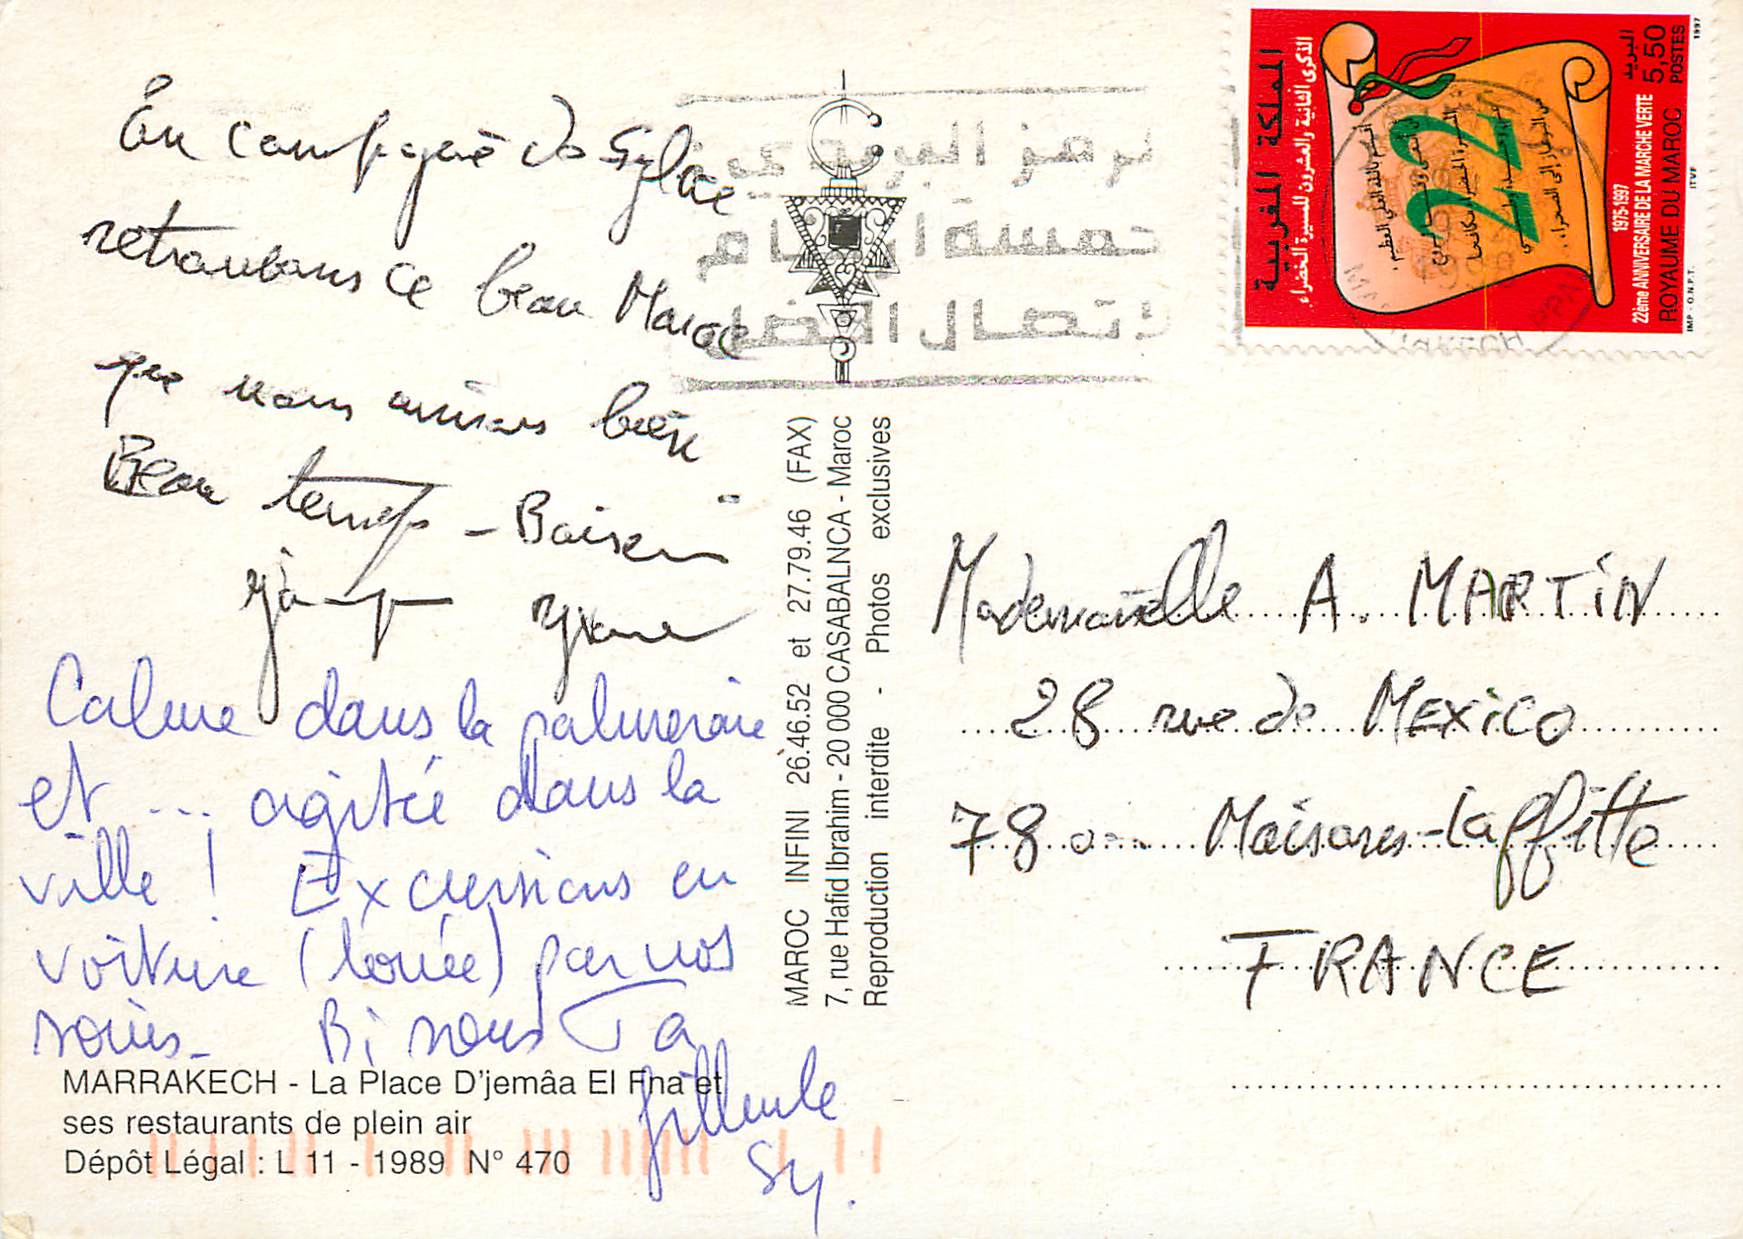 En compagnie de Sylvie
retrouvons ce beau Maroc
que nous aimons bien
Beau temps - Baisers
Calme dans la palmeraie
et ... agitée dans la
ville ! Excursions en
voiture (louée) par nos
soins. Bisous Ta
filleule
Sy.
MARRAKECH - La Place D'jemâa El Fna et
ses restaurants de plein air
Dépôt Légal : L 11 - 1989 N° 470
MAROC INFINI 26.46.52 et 27.79.46 (FAX)
7, rue Hafid Ibrahim - 20 000 CASABALNCA - Maroc
Reproduction interdite - Photos exclusives
المملكة المغربية
الذكرى الثانية والعشرون للمسيرة الخضراء
22
1975-1997
22ème ANNIVERSAIRE DE LA MARCHE VERTE
ROYAUME DU MAROC
البريد
5,50
POSTES
1997
IMP - O.N.P.T.
ITVF
Mademoiselle A. MARTIN
28 rue de MEXICO
78 Maisons-Laffitte
FRANCE